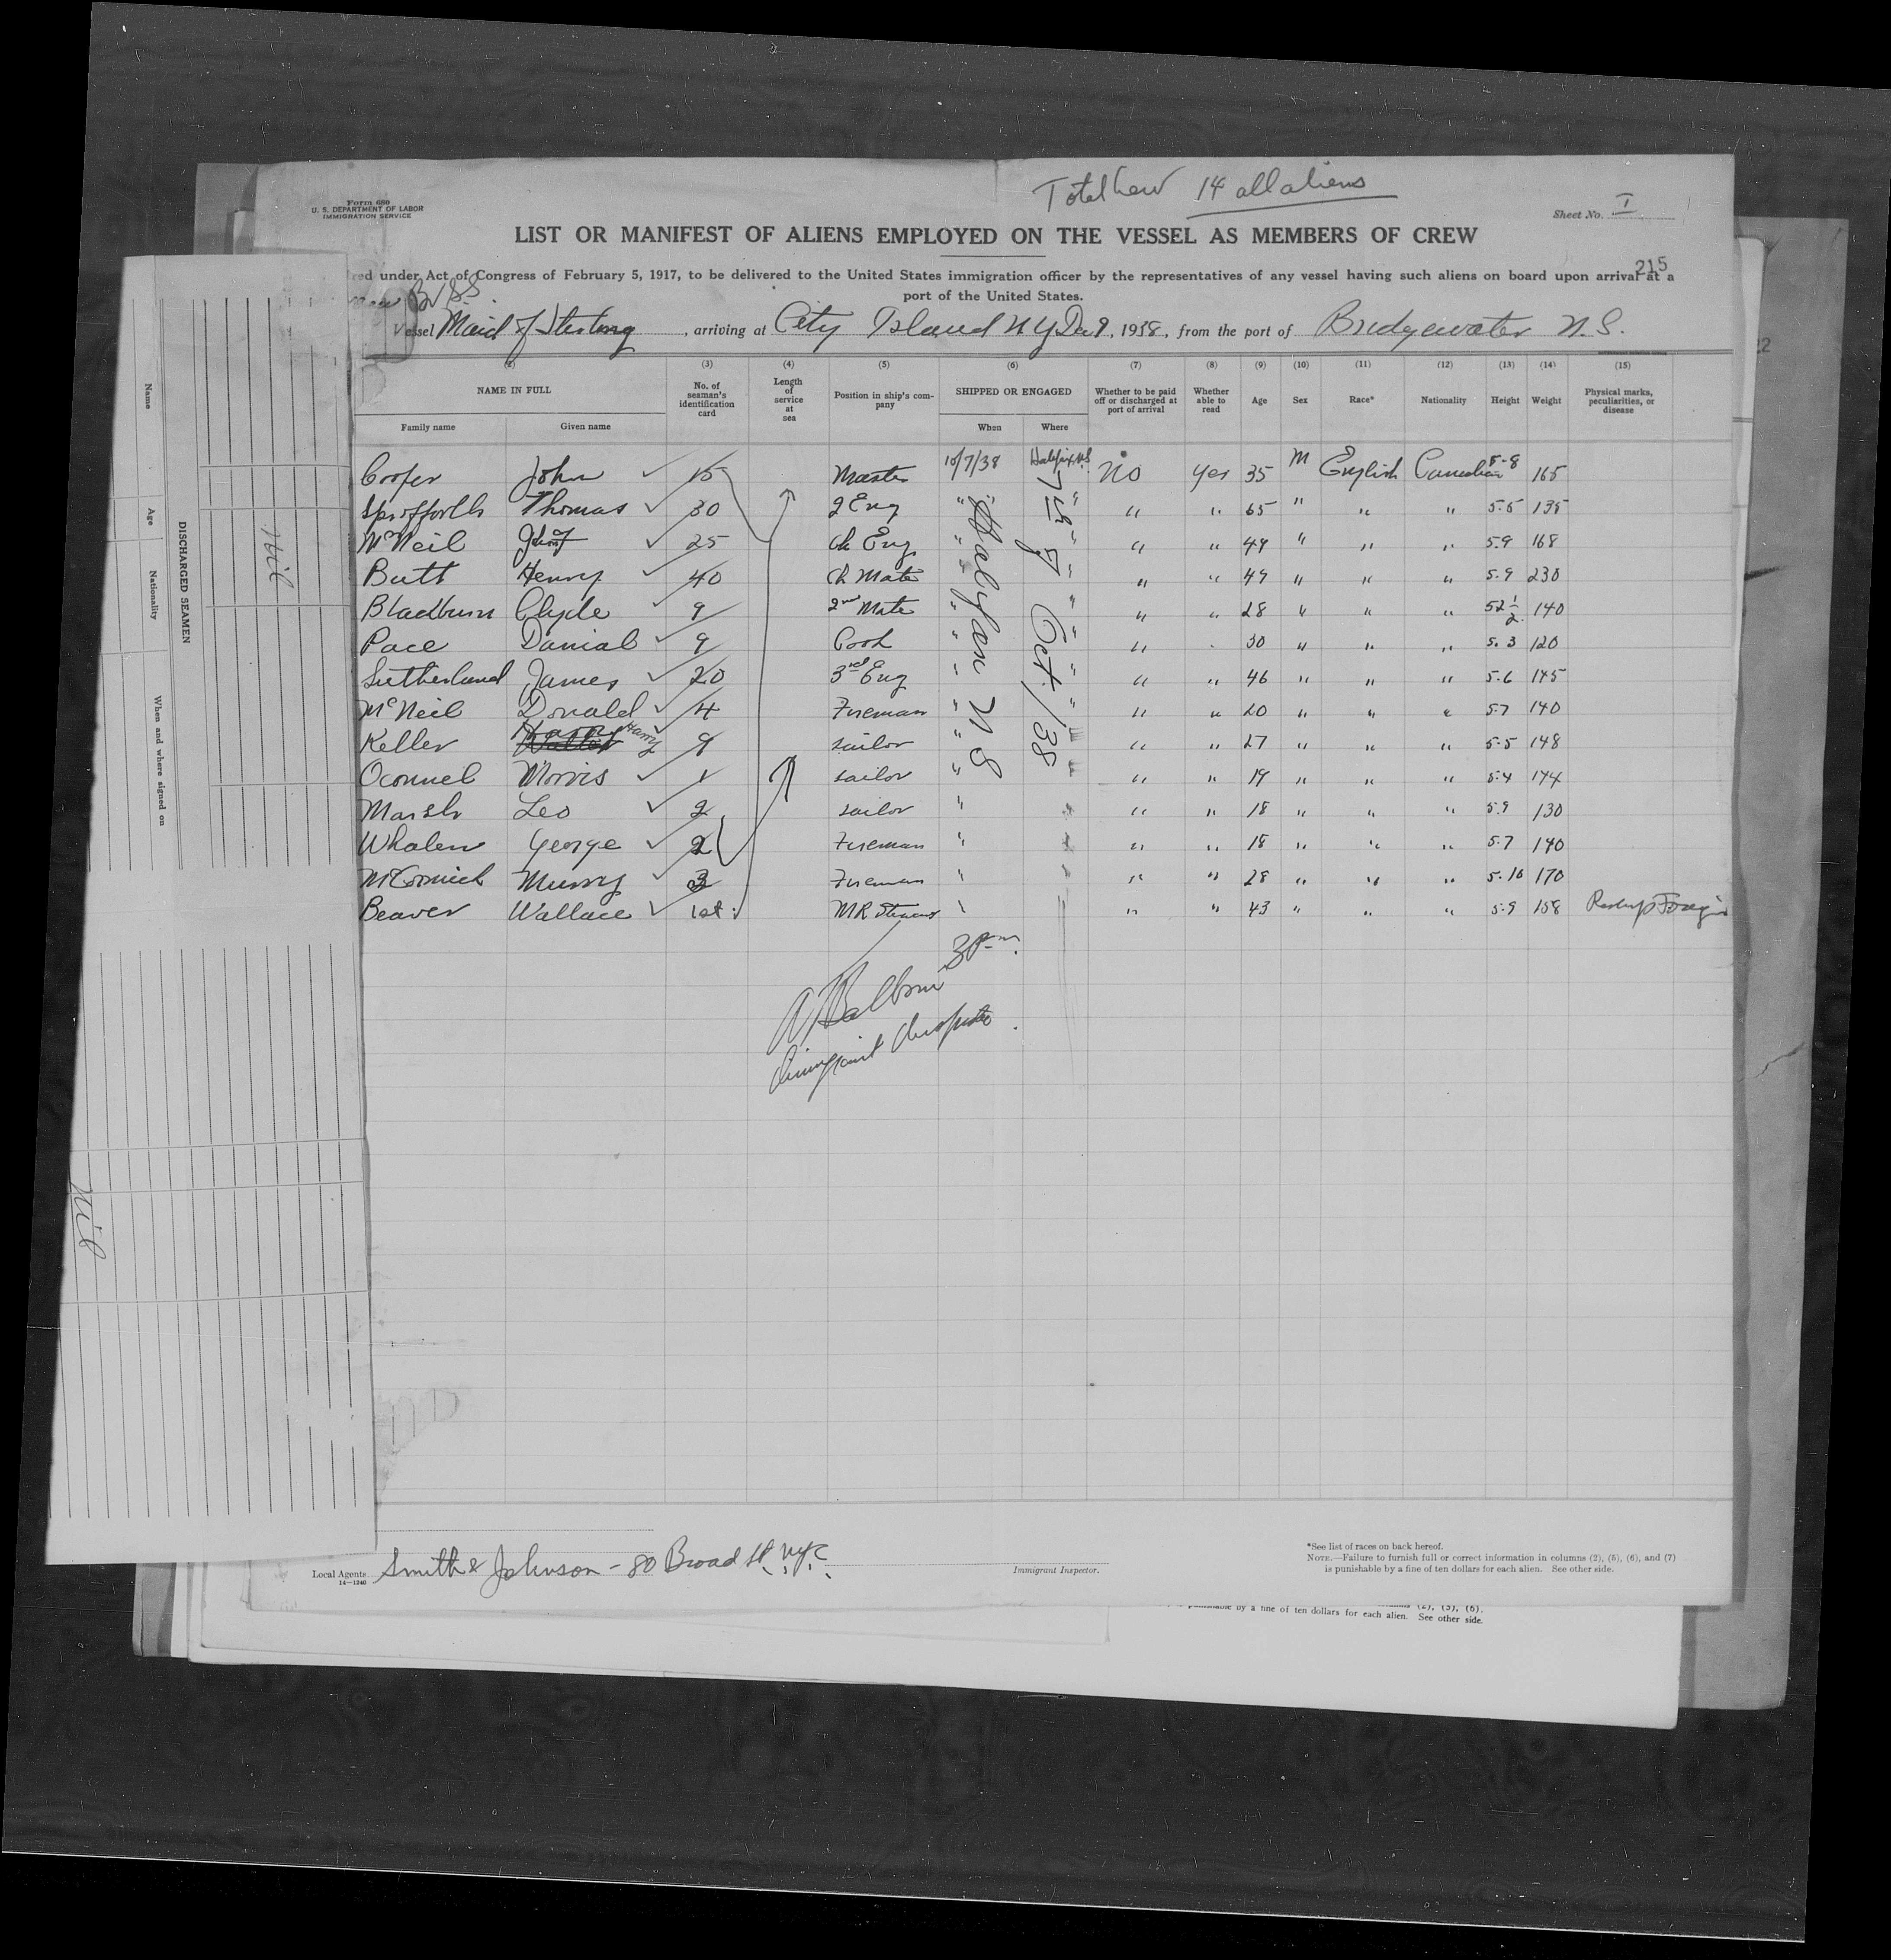 Total Crew 14 all aliens
Form 680
U. S. DEPARTMENT OF LABOR
IMMIGRATION SERVICE
Sheet No. I
LIST OR MANIFEST OF ALIENS EMPLOYED ON THE VESSEL AS MEMBERS OF CREW
215
red under Act of Congress of February 5, 1917, to be delivered to the United States immigration officer by the representatives of any vessel having such aliens on board upon arrival at a
port of the United States.
Br SS
Vessel Maid of Sterling, arriving at City Island N Y Dec 9, 1938, from the port of Bridgewater N.S.
(2) (3) (4) (5) (6) (7) (8) (9) (10) (11) (12) (13) (14) (15)
NAME IN FULL
Family name Given name
No. of seaman's identification card
Length of service at sea
Position in ship's company
SHIPPED OR ENGAGED
When Where
Whether to be paid off or discharged at port of arrival
Whether able to read
Age
Sex
Race*
Nationality
Height
Weight
Physical marks, peculiarities, or disease
Cooper John 15 Master 10/7/38 Halifax N.S. No Yes 35 M English Canadian 5-8 165
Thomas 30 2 Eng " " " " 65 " " " 5-5 135
McNeil 25 Ch Eng " " " " 49 " " " 5-9 168
Butt Henry 40 Ch Mate " " " " 49 " " " 5-9 230
Blackburn Clyde 9 2nd Mate " " " " 28 " " " 5 2 1/2 140
Pace Danial 9 Cook " " " 30 " " " 5-3 120
Sutherland James 20 3rd Eng " " " " 46 " " " 5-6 145
McNeil Donald 4 Fireman " " " " 20 " " " 5-7 140
Keller Harry 9 sailor " " " 27 " " " 5-5 148
Oconnel Morris 1 sailor " " " 19 " " " 5-4 174
Marsh Leo 2 sailor " " " 18 " " " 5-9 130
Whalen George 2 Fireman " " " 18 " " " 5-7 140
McCormick Murry 3 Fireman " " " 28 " " " 5-10 170
Beaver Wallace 1st " " " 43 " " " 5-9 158
Halifax N S
7th of Oct. /38
3 Pm.
Immigrant Inspector
Name
Age
Nationality
When and where signed on
DISCHARGED SEAMEN
Nil
Nil
Local Agents Smith & Johnson - 80 Broad St. N.Y.C.
14-1240
Immigrant Inspector.
*See list of races on back hereof.
NOTE.—Failure to furnish full or correct information in columns (2), (5), (6), and (7)
is punishable by a fine of ten dollars for each alien. See other side.
by a fine of ten dollars for each alien. See other side.